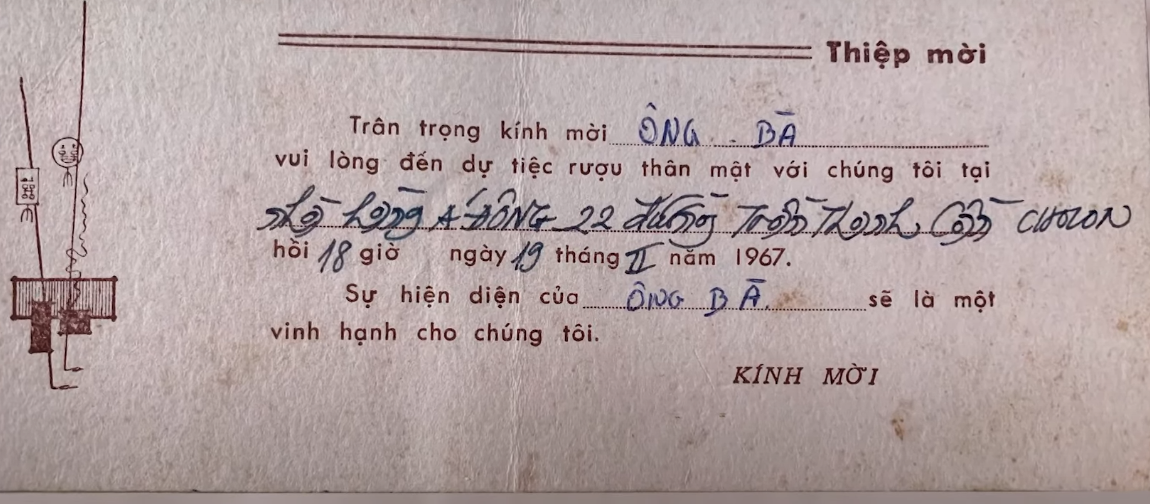 Thiệp mời
Trân trọng kính mời ÔNG BÀ
vui lòng đến dự tiệc rượu thân mật với chúng tôi tại
nhà hàng Á-ĐÔNG 22 đường Trần Thanh Cần CHOLON
hồi 18 giờ ngày 19 tháng II năm 1967.
Sự hiện diện của ÔNG BÀ sẽ là một
vinh hạnh cho chúng tôi.
KÍNH MỜI